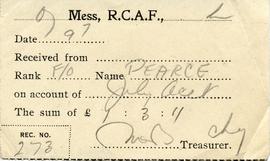 Mess, R.C.A.F.,
Date
Received from
Rank F/O Name PEARCE
on account of July
The sum of £ 1 · 3 · 11
REC. NO.
273
Treasurer.